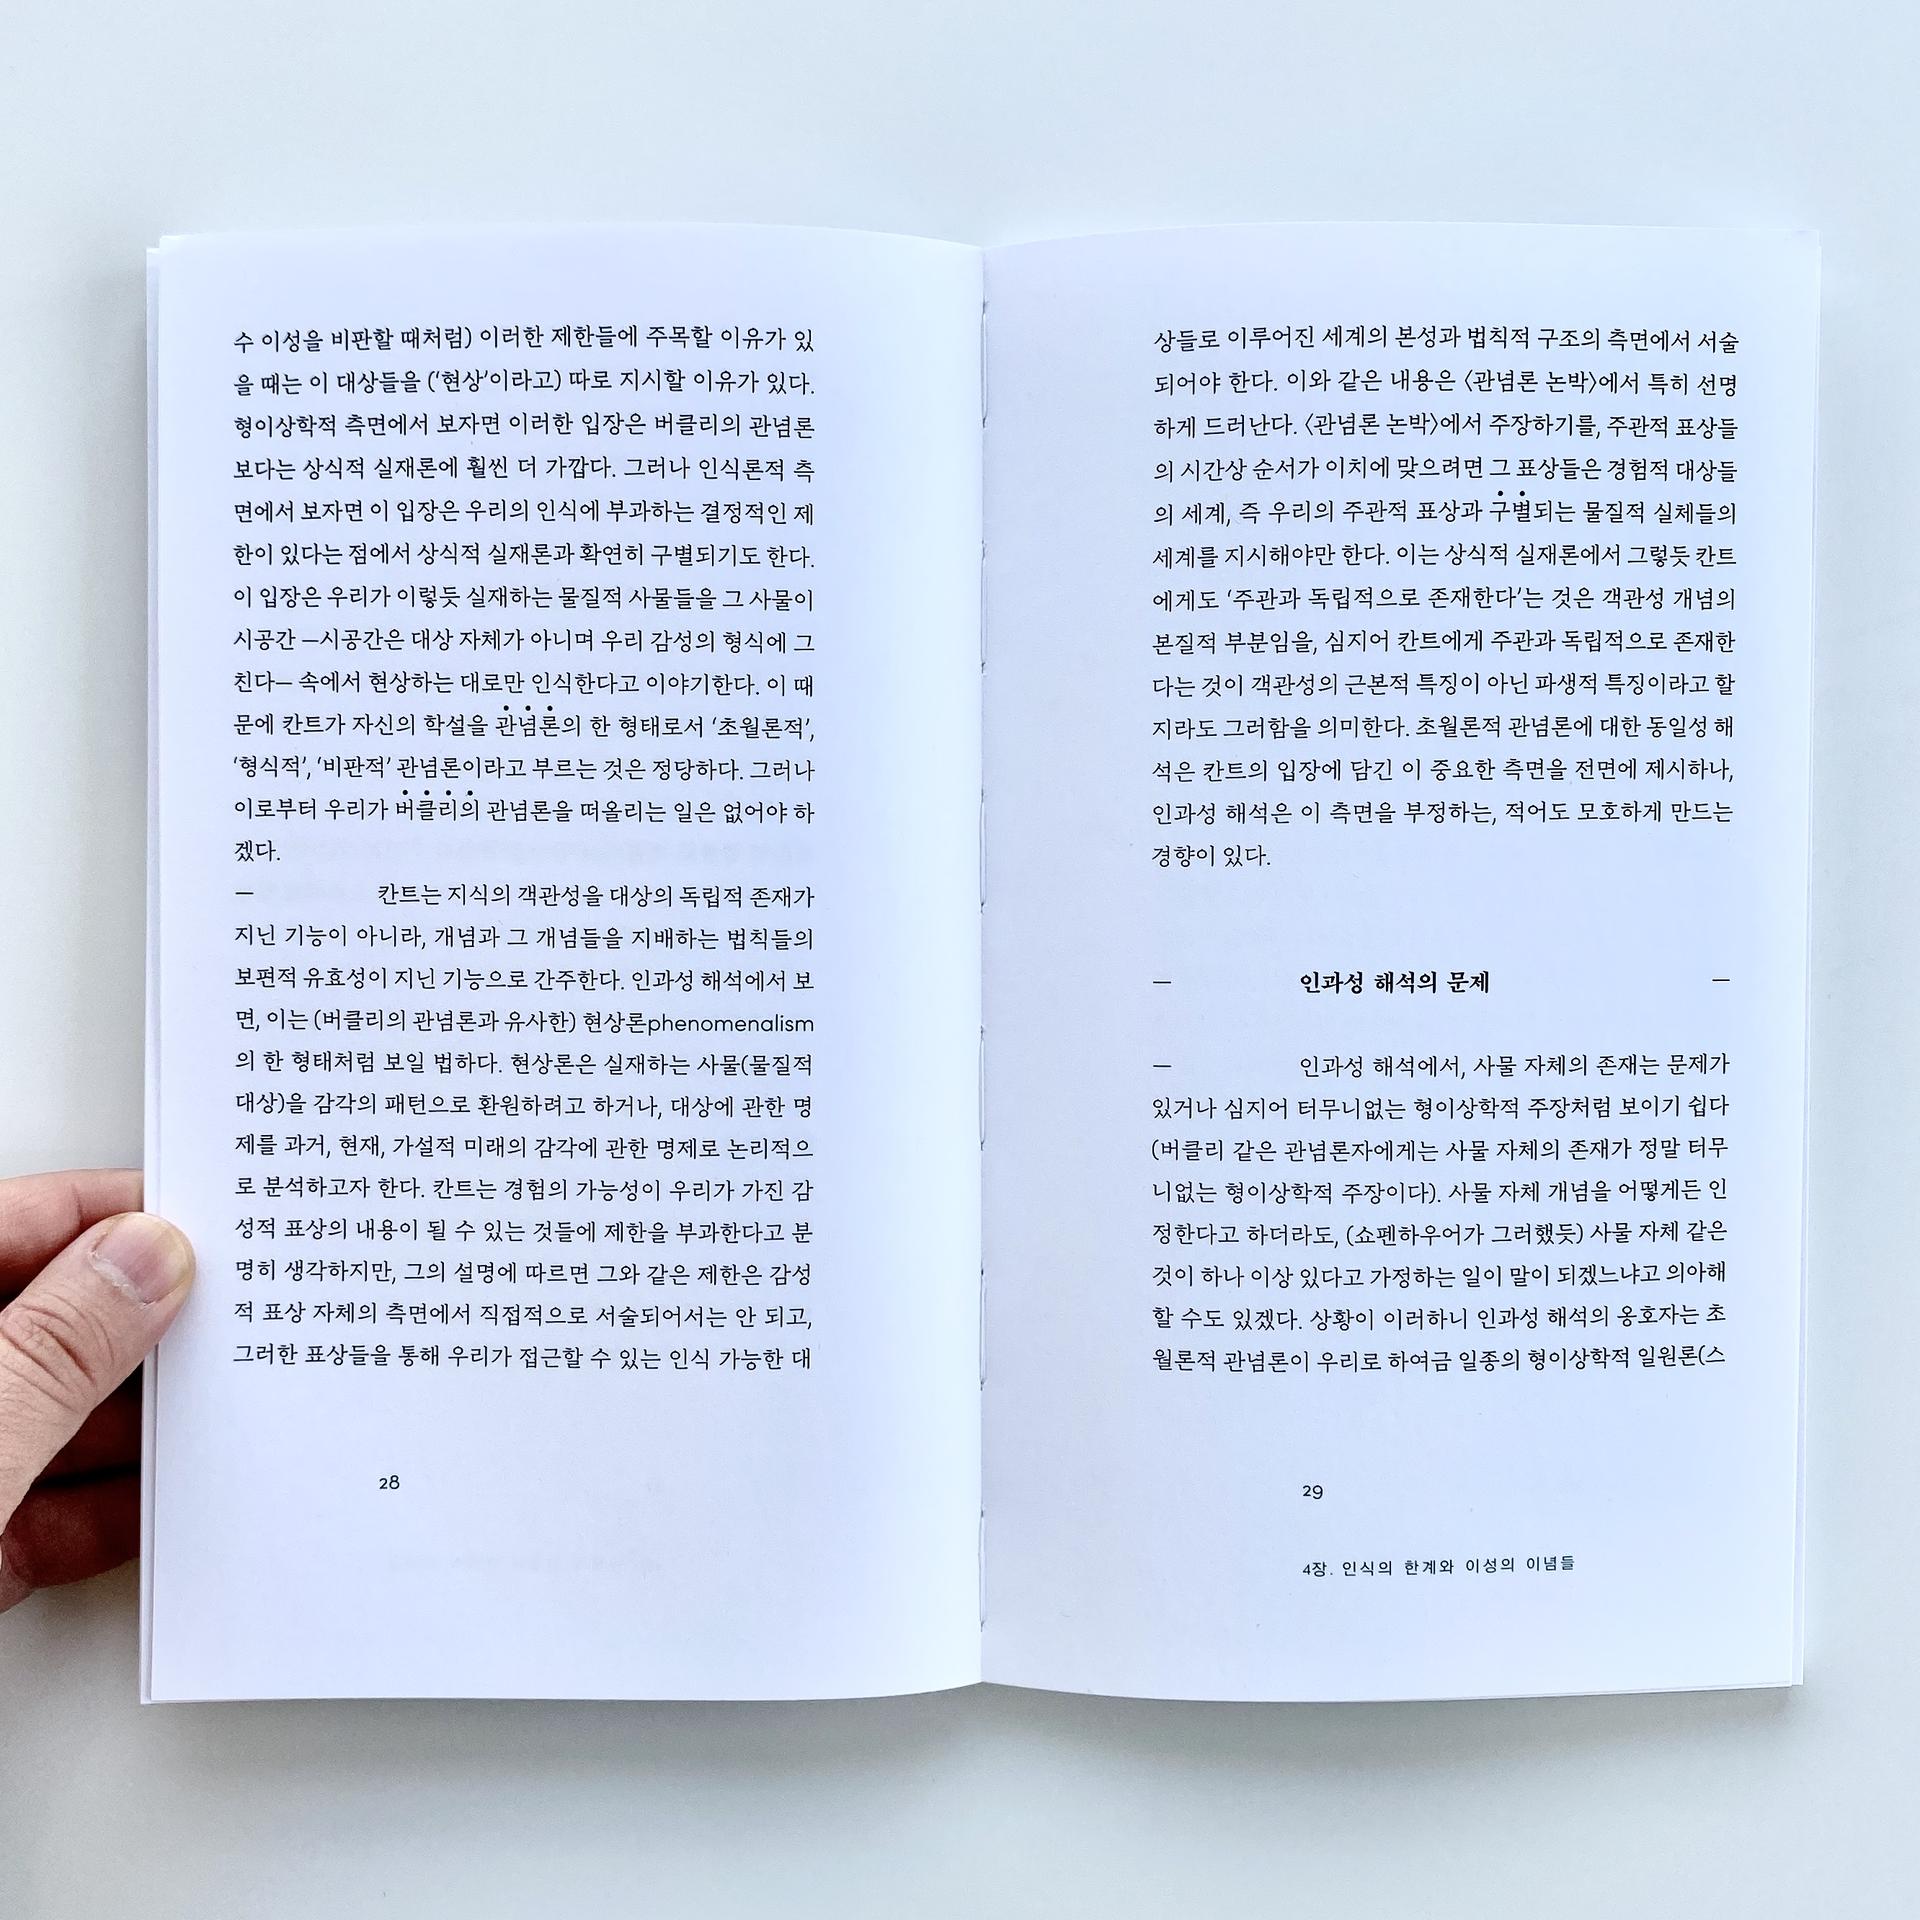 수 이성을 비판할 때처럼) 이러한 제한들에 주목할 이유가 있
을 때는 이 대상들을 (‘현상’이라고) 따로 지시할 이유가 있다.
형이상학적 측면에서 보자면 이러한 입장은 버클리의 관념론
보다는 상식적 실재론에 훨씬 더 가깝다. 그러나 인식론적 측
면에서 보자면 이 입장은 우리의 인식에 부과하는 결정적인 제
한이 있다는 점에서 상식적 실재론과 확연히 구별되기도 한다.
이 입장은 우리가 이렇듯 실재하는 물질적 사물들을 그 사물이
시공간 —시공간은 대상 자체가 아니며 우리 감성의 형식에 그
친다— 속에서 현상하는 대로만 인식한다고 이야기한다. 이 때
문에 칸트가 자신의 학설을 관념론의 한 형태로서 ‘초월론적’,
‘형식적’, ‘비판적’ 관념론이라고 부르는 것은 정당하다. 그러나
이로부터 우리가 버클리의 관념론을 떠올리는 일은 없어야 하
겠다.
— 칸트는 지식의 객관성을 대상의 독립적 존재가
지닌 기능이 아니라, 개념과 그 개념들을 지배하는 법칙들의
보편적 유효성이 지닌 기능으로 간주한다. 인과성 해석에서 보
면, 이는 (버클리의 관념론과 유사한) 현상론phenomenalism
의 한 형태처럼 보일 법하다. 현상론은 실재하는 사물(물질적
대상)을 감각의 패턴으로 환원하려고 하거나, 대상에 관한 명
제를 과거, 현재, 가설적 미래의 감각에 관한 명제로 논리적으
로 분석하고자 한다. 칸트는 경험의 가능성이 우리가 가진 감
성적 표상의 내용이 될 수 있는 것들에 제한을 부과한다고 분
명히 생각하지만, 그의 설명에 따르면 그와 같은 제한은 감성
적 표상 자체의 측면에서 직접적으로 서술되어서는 안 되고,
그러한 표상들을 통해 우리가 접근할 수 있는 인식 가능한 대
28
상들로 이루어진 세계의 본성과 법칙적 구조의 측면에서 서술
되어야 한다. 이와 같은 내용은 〈관념론 논박〉에서 특히 선명
하게 드러난다. 〈관념론 논박〉에서 주장하기를, 주관적 표상들
의 시간상 순서가 이치에 맞으려면 그 표상들은 경험적 대상들
의 세계, 즉 우리의 주관적 표상과 구별되는 물질적 실체들의
세계를 지시해야만 한다. 이는 상식적 실재론에서 그렇듯 칸트
에게도 ‘주관과 독립적으로 존재한다’는 것은 객관성 개념의
본질적 부분임을, 심지어 칸트에게 주관과 독립적으로 존재한
다는 것이 객관성의 근본적 특징이 아닌 파생적 특징이라고 할
지라도 그러함을 의미한다. 초월론적 관념론에 대한 동일성 해
석은 칸트의 입장에 담긴 이 중요한 측면을 전면에 제시하나,
인과성 해석은 이 측면을 부정하는, 적어도 모호하게 만드는
경향이 있다.
— 인과성 해석의 문제 —
— 인과성 해석에서, 사물 자체의 존재는 문제가
있거나 심지어 터무니없는 형이상학적 주장처럼 보이기 쉽다
(버클리 같은 관념론자에게는 사물 자체의 존재가 정말 터무
니없는 형이상학적 주장이다). 사물 자체 개념을 어떻게든 인
정한다고 하더라도, (쇼펜하우어가 그러했듯) 사물 자체 같은
것이 하나 이상 있다고 가정하는 일이 말이 되겠느냐고 의아해
할 수도 있겠다. 상황이 이러하니 인과성 해석의 옹호자는 초
월론적 관념론이 우리로 하여금 일종의 형이상학적 일원론(스
29
4장. 인식의 한계와 이성의 이념들